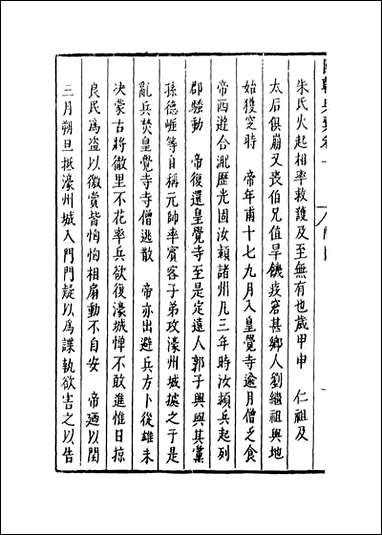 朱氏火起相率救護及至無有也歲甲申　仁祖及
太后俱崩又喪伯兄值旱饑疫窘甚鄉人劉繼祖與地
始獲窆時　帝年甫十七九月入皇覺寺逾月僧乏食
帝西遊合淝歷光固汝潁諸州凡三年時汝潁兵起列
郡騷動　帝復還皇覺寺至是定遠人郭子興與其黨
孫德崖等自稱元帥率賓客子弟攻濠州城據之于是
亂兵焚皇覺寺寺僧逃散　帝亦出避兵方卜從雄未
決蒙古將徹里不花率兵欲復濠城憚不敢進惟日掠
良民爲盜以徼賞皆恟恟相扇動不自安　帝廼以閏
三月朔旦抵濠州城入門門疑以爲諜執欲害之以告